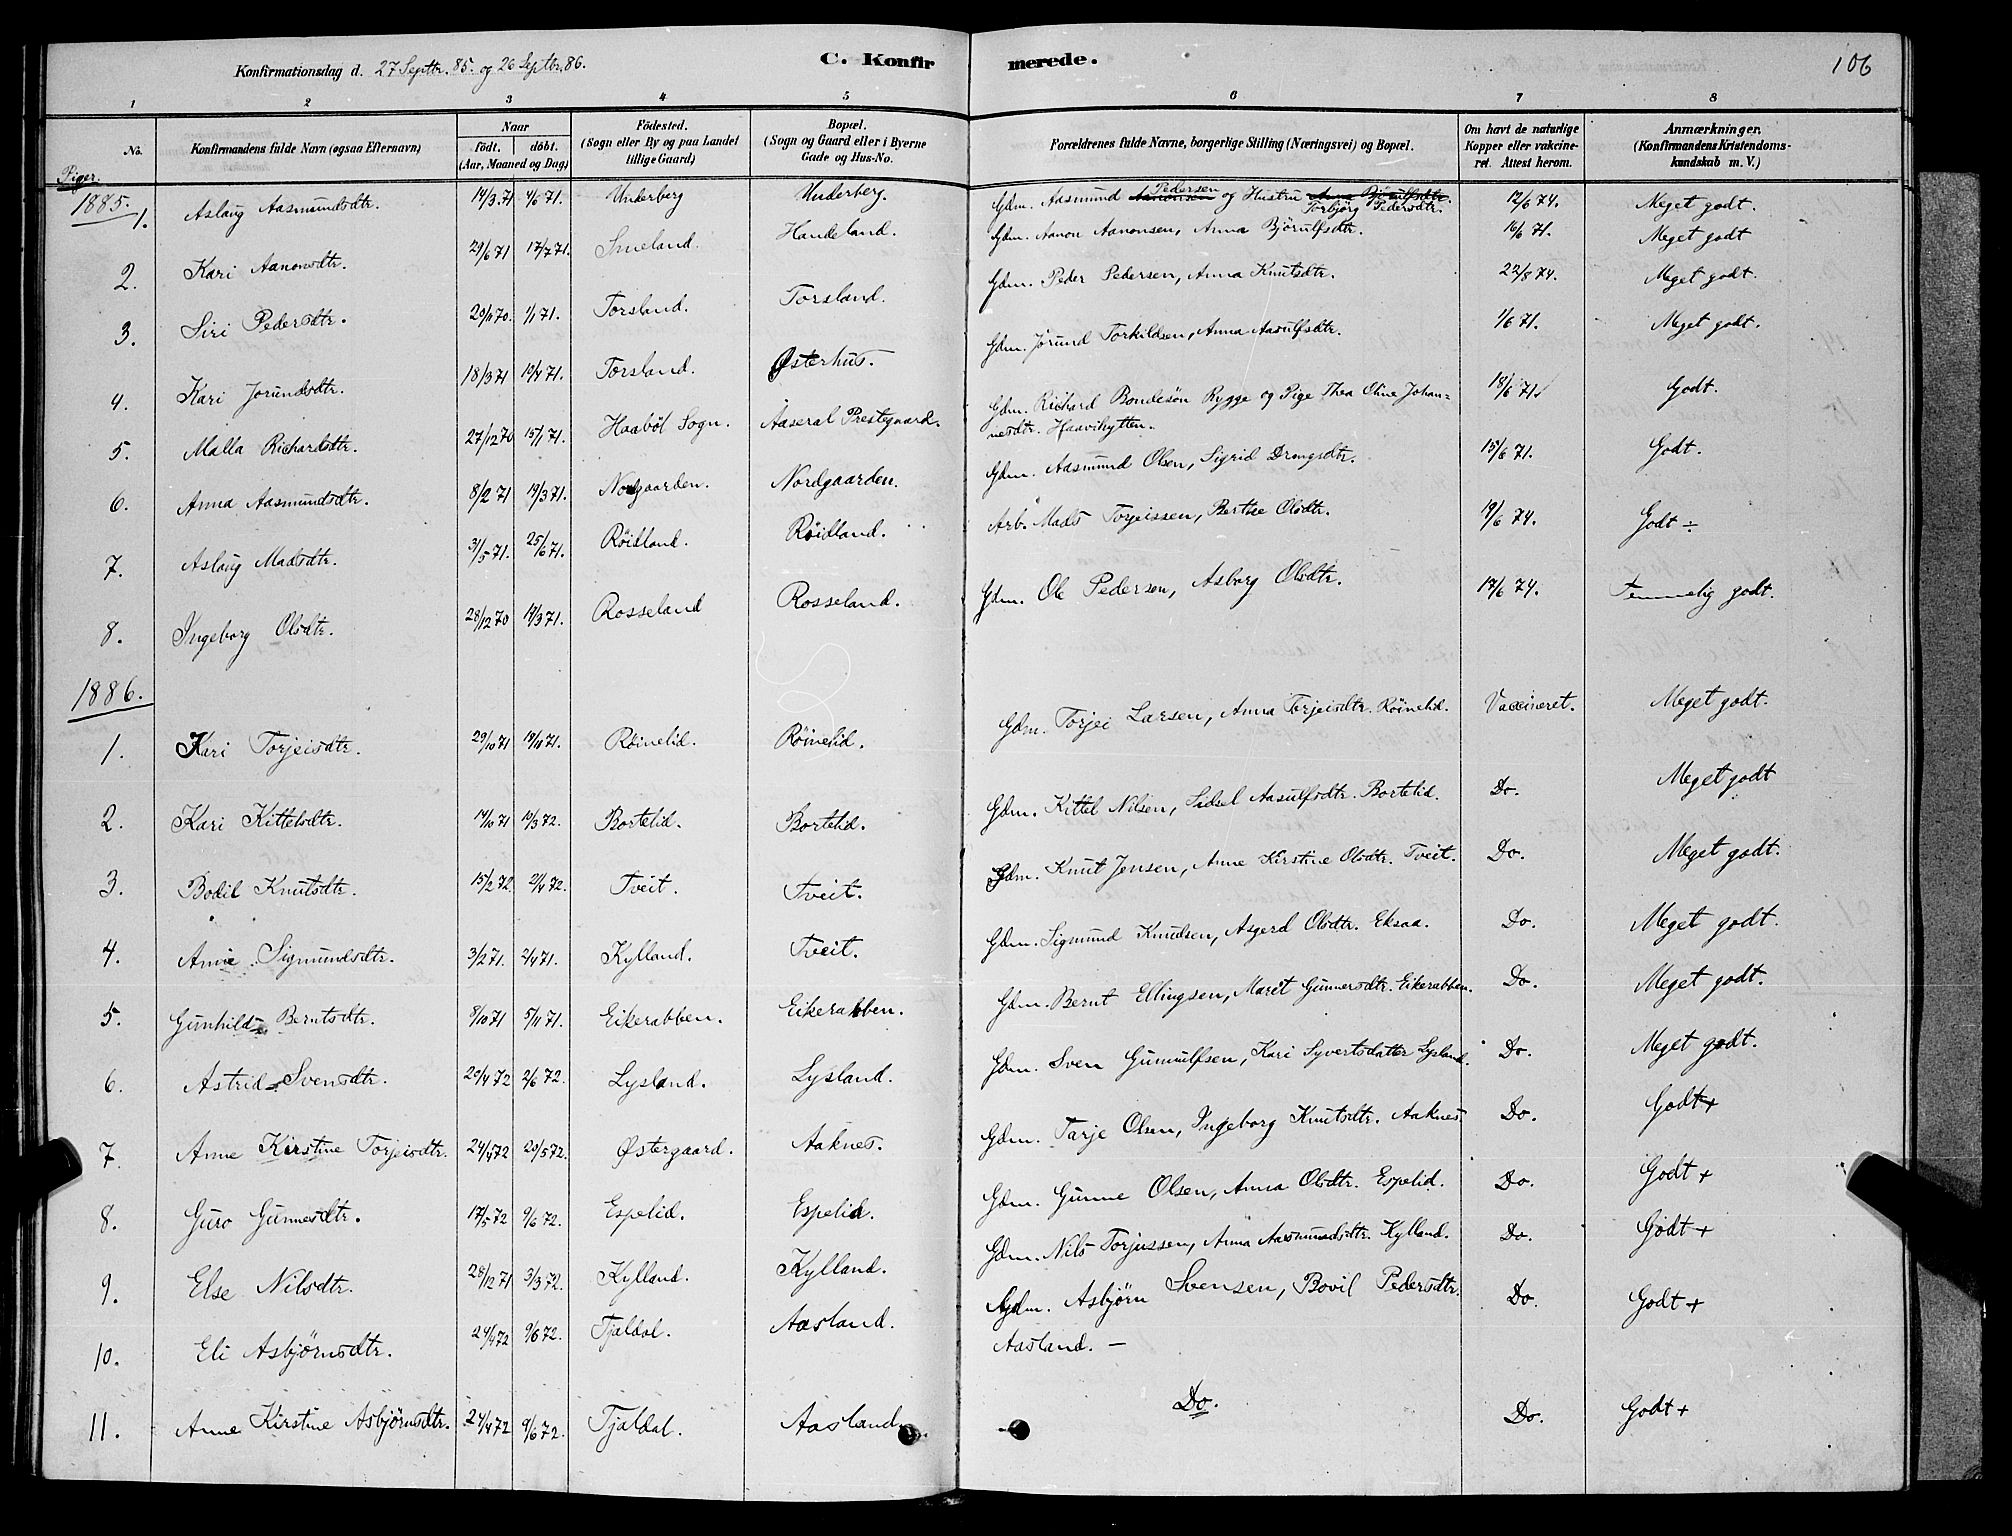 Konfirmationsdag d. 27 Septbr. 85. og 26 Septbr. 86. C. Konfirmerede. 106
1 2 3 4 5 6 7 8
No. Konfirmandens fulde Navn (ogsaa Efternavn) Naar födt. döbt. (Aar, Maaned og Dag) Födested. (Sogn eller By og paa Landet tillige Gaard) Bopæl. (Sogn og Gaard eller i Byerne Gade og Hus-No. Forældrenes fulde Navne, borgerlige Stilling (Næringsvei) og Bopæl. Om havt de naturlige Kopper eller vakcineret. Attest herom. Anmærkninger. (Konfirmandens Kristendomskundskab m. V.)
Piger.
1885.
1. Aslaug Aasmundsdtr. 14/3 71 4/6 71. Underberg Underberg. Gdm. Aasmund Aanonsen Pedersen og Hustru Anna Bjørulfsdtr. Torbjørg Pedersdtr. 12/6 74. Meget godt.
2. Kari Aanonsdtr. 29/6 71 17/7 71. Smeland. Handeland. Gdm. Aanon Aanonsen, Anna Björulfsdtr. 16/6 71. Meget godt
3. Siri Pedersdtr. 29/11 70. 1/1 71. Torsland. Torsland. Gdm. Peder Pedersen, Anna Knutsdtr. 22/8 74. Meget godt.
4. Kari Jorundsdtr. 18/3 71 10/4 71. Torsland. Østerhus. Gdm. Jørund Torkildsen, Anna Aasulfsdtr. 1/6 71. Meget godt.
5. Malla Richardsdtr. 27/12 70 15/1 71. Haaböl Sogn. Aaseral Prestegaard. Gdm. Richard Bondesön Rygge og Pige Thea Oline Johannesdtr. Haavihytten. 18/6 71. Godt.
6. Anna Aasmundsdtr. 8/2 71 19/3 71. Nordgaarden. Nordgaarden. Gdm. Aasmund Olsen, Sigrid Drengsdtr. 15/6 71. Godt.
7. Aslaug Madsdtr. 31/5 71. 25/6 71. Röidland. Röidland. Arb. Mads Torjeissen, Berthe Olsdtr. 19/6 74. Godt ÷
8. Ingeborg Olsdtr. 28/12 70 19/3 71. Rosseland Rosseland. Gdm. Ole Pedersen, Asborg Olsdtr. 17/6 74. Temmelig godt.
1886.
1. Kari Torjeisdtr. 29/10 71 19/11 71. Röinelid. Röinelid. Gdm. Torjei Larsen, Anna Torjeisdtr. Röinelid. Vaccineret. Meget godt.
2. Kari Kittelsdtr. 14/10 71 10/3 72. Bortelid. Bortelid. Gdm. Kittel Nilsen, Sidsel Aasulfsdtr. Bortelid. Do. Meget godt
3. Bodil Knutsdtr. 15/2 72. 2/4 72. Tveit. Tveit. Gdm. Knut Jensen, Anne Kirstine Olsdtr. Tveit. Do. Meget godt.
4. Anne Sigmundsdtr. 3/2 71. 2/4 71. Kylland. Tveit. Gdm. Sigmund Knudsen, Asgerd Olsdtr. Eksaa. Do. Meget godt.
5. Gunhild Berntsdtr. 8/10 71 5/11 71. Eikerabben. Eikerabben. Gdm. Bernt Ellingsen, Maret Gunnersdtr. Eikerabben. Do. Meget godt.
6. Astrid Svensdtr. 20/4 72 2/6 72. Lysland. Lysland. Gdm. Sven Gunnulfsen, Kari Syvertsdatter Lysland. Do. Meget godt.
7. Anne Kirstine Torjeisdtr. 24/4 72 20/5 72. Østergaard. Aaknes. Gdm. Tarje Olsen, Ingeborg Knutsdtr. Aaknes. Do. Godt +
8. Guro Gunnesdtr. 17/5 72 9/6 72. Espelid. Espelid. Gdm. Gunne Olsen, Anna Olsdtr. Espelid. Do. Godt +
9. Else Nilsdtr. 28/12 71 3/3 72. Kylland. Kylland. Gdm. Nils Torjussen, Anna Aasmundsdtr. Kylland. Do. Godt +
10. Eli Asbjørnsdtr. 24/4 72 9/6 72. Tjaldal. Aasland. Gdm. Asbjørn Svensen, Bovil Pedersdtr. Aasland. — Do. Godt +
11. Anne Kirstine Asbjørnsdtr. 24/4 72 9/6 72. Tjaldal. Aasland. Do. Do. Godt +